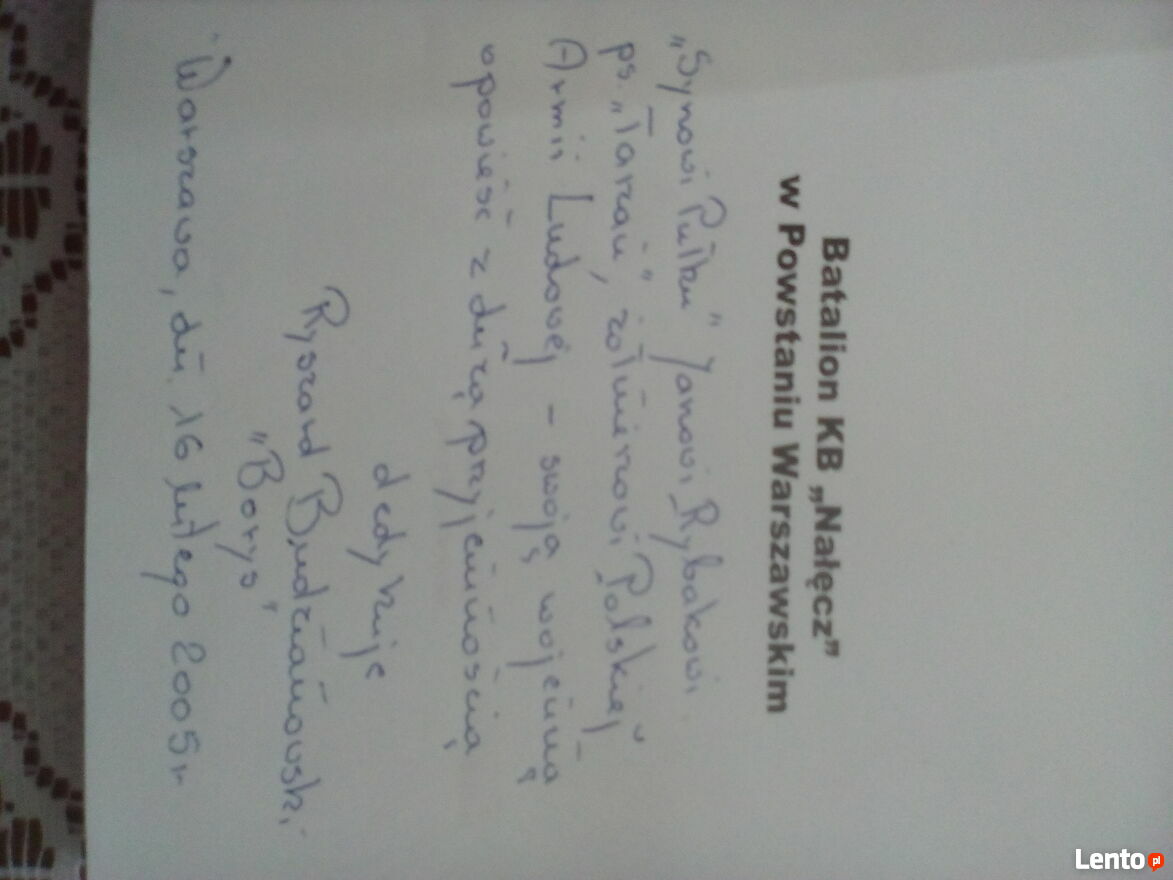 Batalion KB „Nałęcz”
w Powstaniu Warszawskim
„Synowi Pułku” Janowi Rybakowi
ps. „Tarzan”, żołnierzowi Polskiej
Armii Ludowej – swoją wojenną
opowieść z dużą przyjemnością
dedykuje
Ryszard Budzianowski
„Borys”
Warszawa, dn. 16 lutego 2005 r
Lento pl